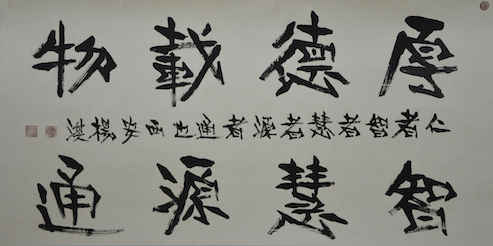 厚德載物
仁者智者慧者源者通也西安楊
智慧源通